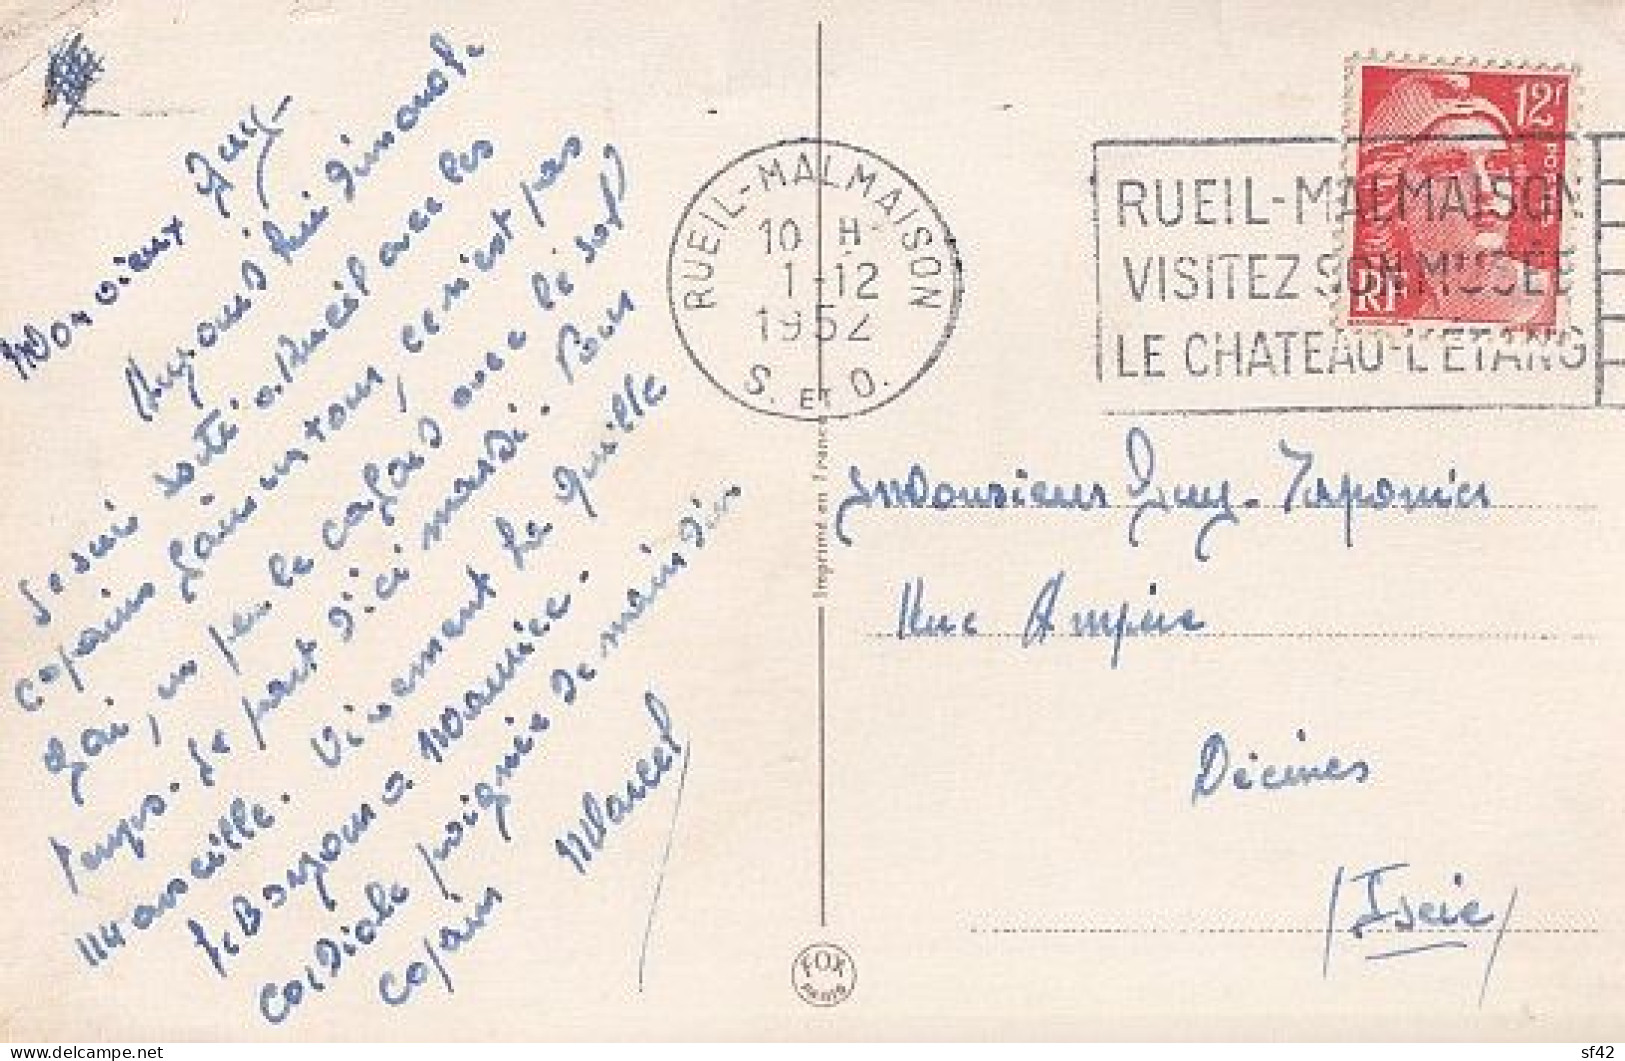 Mon vieux Guy
Aujourd'hui dimanche
Je suis sorti à Rueil avec les
copains faire un tour, ce n'est pas
gai, un peu le cafard avec le
temps. Je part d'ici mardi. Pour
Marseille. Vivement la quille
le Bonjour a Maurice.
Cordiale poignée de main d'un
copain Marcel
RUEIL-MALMAISON
10 H
1-12
1952
S. ET O.
RUEIL-MALMAISON
VISITEZ SON MUSÉE
LE CHATEAU-L'ÉTANG
12F
POSTES
RF
Monsieur Guy-Taponier
Rue Ampère
Décines
(Isère)
Imprimé en France
FOX
PARIS
delcampe.net
sf42